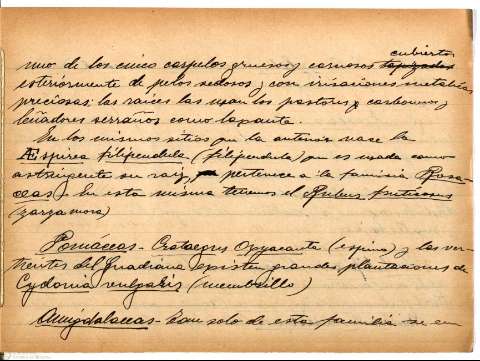 uno de los cinco carpelos gruesos y carnosos tapizados cubiertos
esteriormente de pelos sedosos y con irisaciones metalicas
preciosas: las raices las usan los pastores y carboneros y
leñadores serranos como la yauta.
En los mismos sitios que la anterior nace la
Espirea filipendula (filipendula) que es usada como
astringente su raiz, y pertenece a la familia Rosa-
ceas. En esta misma tenemos el Rubus fruticosus
(zarzamora)
Pomáceas - Crataegus Oxyacanta (espino) y las ver-
tientes del Guadiana existen grandes plantaciones de
Cydonia vulgaris (membrillo)
Amigdalaceas - Tan solo de esta familia se en